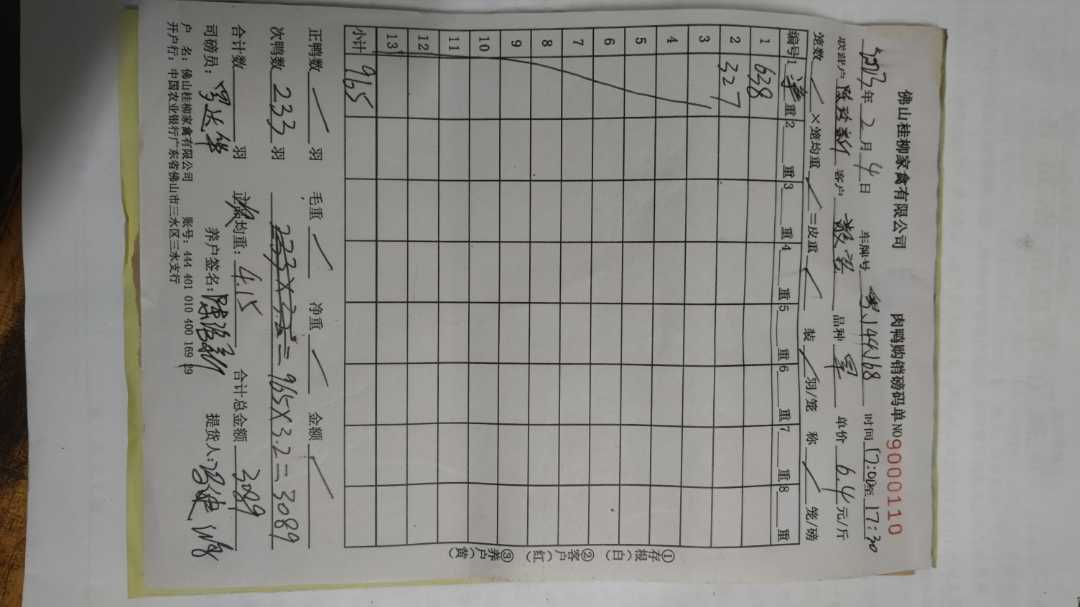 佛山桂柳家禽有限公司 肉鸭购销磅码单 NO 9000110
年 2 月 4 日 车牌号 时间 17:00至 17:30
客户 品种 单价 6.4 元/斤
笼数 ×笼均重 =皮重 装 羽/笼 称 笼/磅
编号 1 重 2 重 3 重 4 重 5 重 6 重 7 重 8 重
1 638
2 327
3
4
5
6
7
8
9
10
11
12
13
小计 965
正鸭数 羽 毛重 净重 金额
次鸭数 233 羽 = 965×3.2 = 3089
合计数 羽 均重: 4.15 合计总金额 3089
司磅员: 养户签名: 提货人:
户 名: 佛山桂柳家禽有限公司 账号: 444 401 010 400 169 89
开户行: 中国农业银行广东省佛山市三水区三水支行
①存根(白) ②客户(红) ③养户(黄)